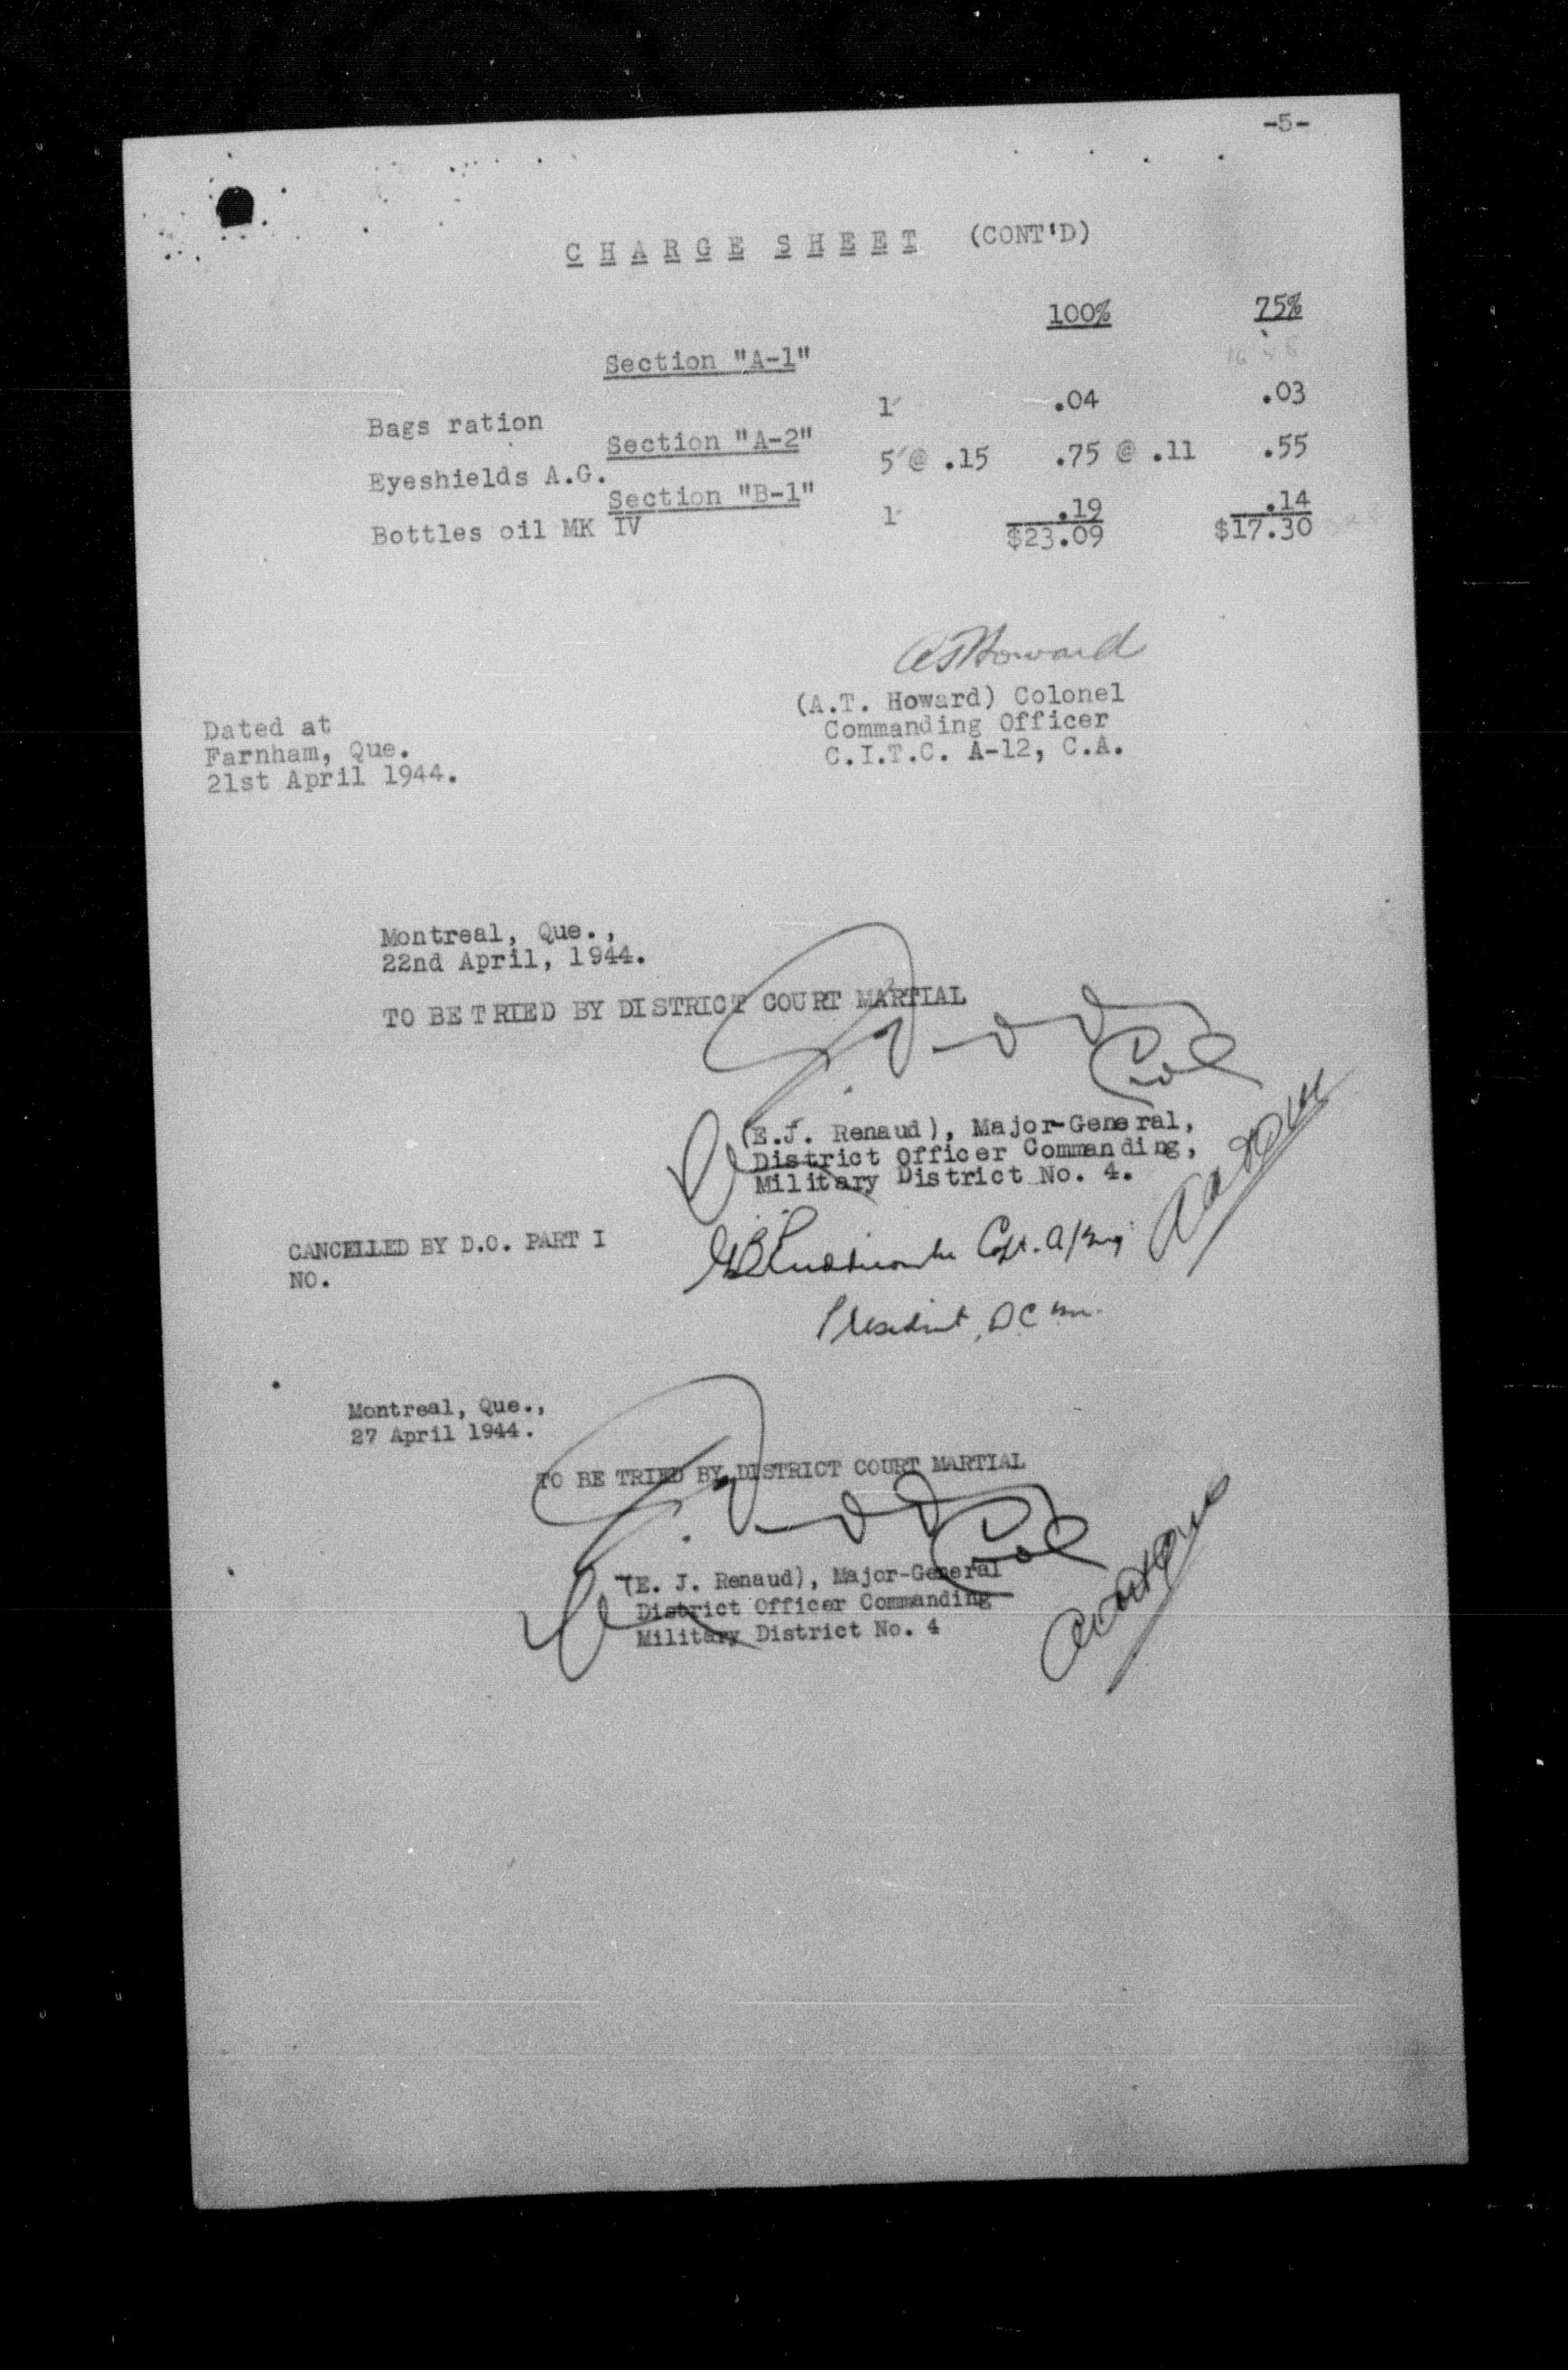 -5-
CHARGE SHEET (CONT'D)
100% 75%
Section "A-1"
Bags ration 1 .04 .03
Section "A-2"
Eyeshields A.G. 5 @ .15 .75 @ .11 .55
Section "B-1"
Bottles oil MK IV 1 .19 .14
$23.09 $17.30
A T Howard
(A.T. Howard) Colonel
Commanding Officer
C.I.T.C. A-12, C.A.
Dated at
Farnham, Que.
21st April 1944.
Montreal, Que.,
22nd April, 1944.
TO BE TRIED BY DISTRICT COURT MARTIAL
Col
(E.J. Renaud), Major-General,
District Officer Commanding,
Military District No. 4.
CANCELLED BY D.O. PART I
NO.
Capt.
President, D C M.
Montreal, Que.,
27 April 1944.
TO BE TRIED BY DISTRICT COURT MARTIAL
Col
(E. J. Renaud), Major-General
District Officer Commanding
Military District No. 4